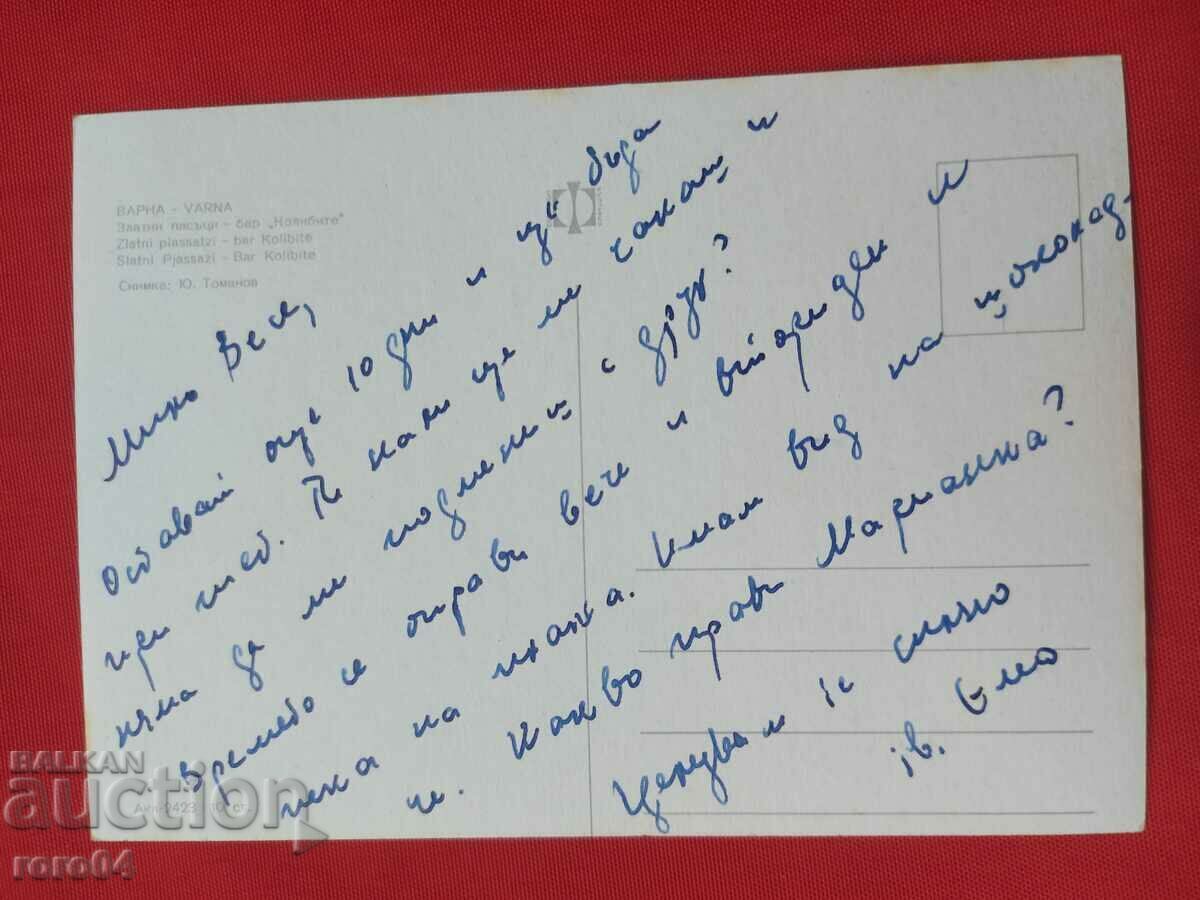 ВАРНА - VARNA
Златни пясъци - бар „Колибите"
Zlatni piassatzi - bar Kolibite
Slatni Pjassazi - Bar Kolibite
Снимка: Ю. Томанов
Мила Веси,
Остават още 10 дни и ще бъда
при теб. Ти нали ще ме чакаш и
няма да ме подмениш с друг?
Времето се оправи вече и втори ден
пека на плажа. Имам вид на шоколад-
че. Какво прави Марианна?
Целувам те силно
тв. Емо
Акл-2423 10 ст.
BALKAN
auction
roro04